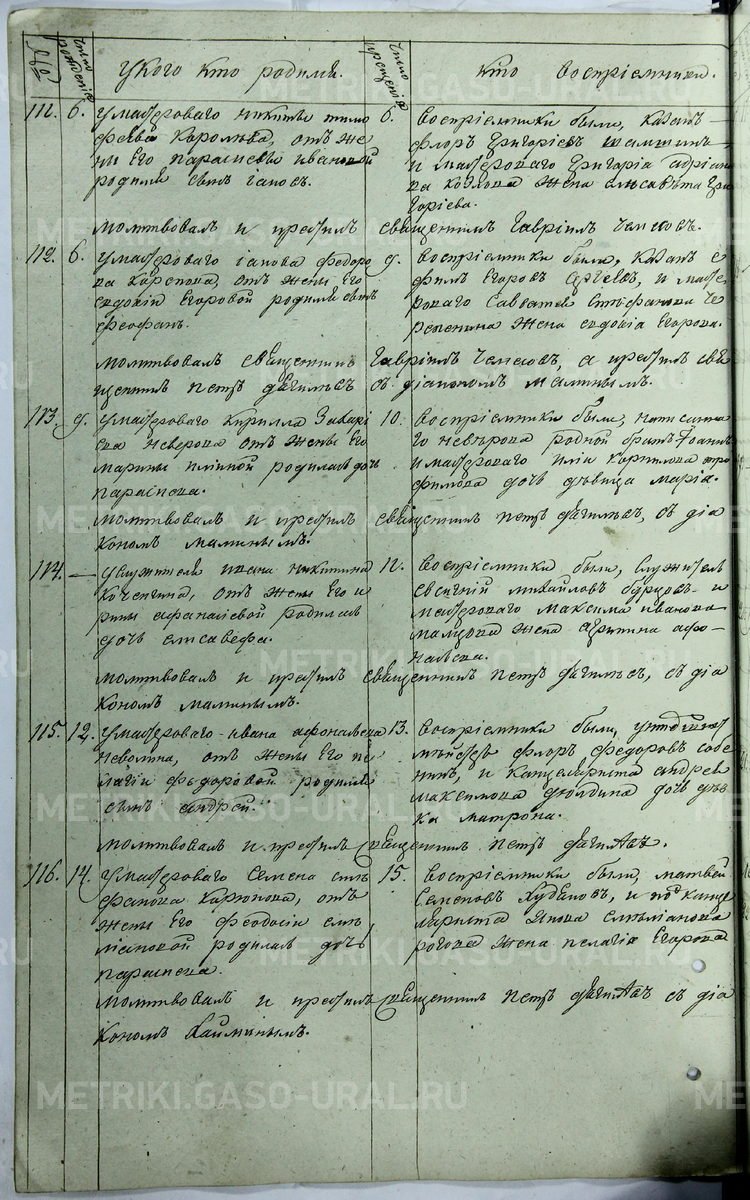 число рожденія
У кого кто родился.
число крещенія
кто воспріемники.
111. 6. У мастероваго никиты тимо
фѣева Королева, отъ же
ны Его параскевы ивановой
родился сынъ іаковъ.
6. воспріемники были, казакъ
флоръ Григорьевъ шамшинъ
и мастероваго Григорія адріано
ва козлова жена елисавѣта Гри
горіева.
молитвовалъ и крестилъ священникъ Гавріилъ Чемесовъ.
112. 6. У мастероваго іакова федоро
ва Карепова, отъ жены Его
евдокіи Егоровой родился сынъ
феофанъ.
9. воспріемники были, казакъ е
фимъ Егоровъ, и масте
роваго Савватея Стефанова Че
репенина жена евдокія Егорова.
молитвовалъ священникъ Гавріилъ Чемесовъ, а крестилъ свя
щенникъ петръ съ діакономъ малинымъ.
113. 9. У мастероваго кирилла Захарі
ева неверова отъ жены Его
марины родилась дочь
параскева.
10. воспріемники были, писан
го невѣрова родной братъ Іоаннъ
и мастероваго иліи корнилова тро
фимова дочь дѣвица марія.
молитвовалъ и крестилъ священникъ петръ, съ діа
кономъ малинымъ.
114. — У служителя ивана никитина
Кочегина, отъ жены Его и
рины афанасіевой родилась
дочь елисавефа.
12. воспріемники были, служитель
евсигній михайловъ бурцовъ и
мастероваго максима иванова
мальцова жена агрипина афо
насьева.
молитвовалъ и крестилъ священникъ петръ, съ діа
кономъ малинымъ.
115. 12. У мастероваго ивана афонасьева
неволина, отъ жены Его пе
лагіи федоровой родился
сынъ андрей.
13. воспріемники были,
флоръ федоровъ собе
нинъ, и канцеляриста андрея
максимова дюлдина дочь дѣв
ка матрона.
молитвовалъ и крестилъ священникъ петръ.
116. 14. У мастероваго Семена сте
фанова Карюкова, отъ
жены Его феодосіи емел
ліановой родилась дочь
параскева.
15. воспріемники были, матвей
Семеновъ Худяковъ, и подканце
ляриста Якова емельянова
рогова жена пелагія Егорова
молитвовалъ и крестилъ священникъ петръ съ діа
кономъ
METRIKI.GASO-URAL.RU